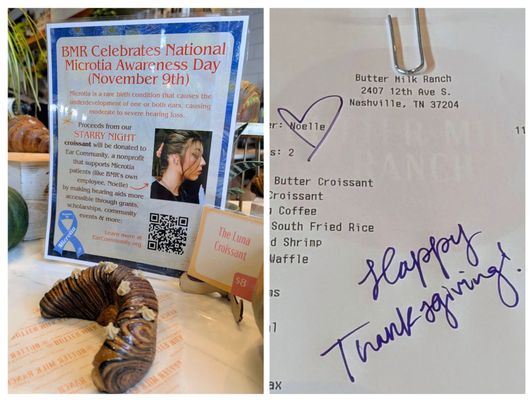 BMR Celebrates National
Microtia Awareness Day
(November 9th)
Microtia is a rare birth condition that causes the
underdevelopment of one or both ears, causing
moderate to severe hearing loss.
Proceeds from our
STARRY NIGHT
croissant will be donated to
Ear Community, a nonprofit
that supports Microtia
patients (like BMR's own
employee, Noelle)
by making hearing aids more
accessible through grants,
scholarships, community
events & more;
Learn more at
EarCommunity.org
The Luna
Croissant
$8
Butter Milk Ranch
2407 12th Ave S.
Nashville, TN 37204
er: Noelle
11
s: 2
Butter Croissant
Croissant
n Coffee
South Fried Rice
d Shrimp
Waffle
ms
al
ax
Happy
Thanksgiving!